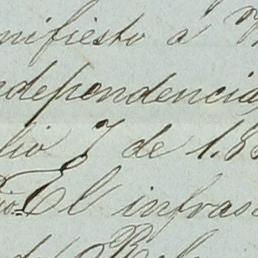 nifiesto a
ndependencia
lio 7 de 1.8
El infras